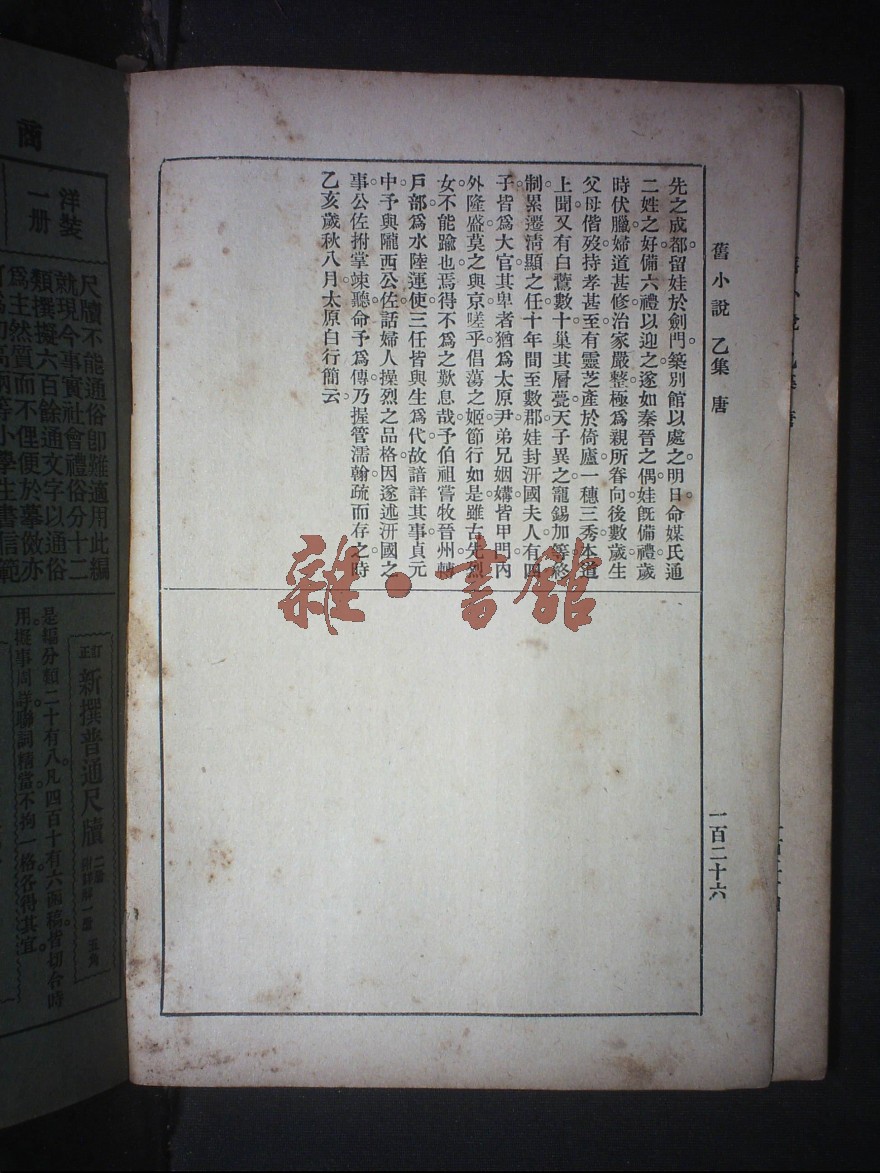 舊小說 乙集 唐
先之成都。留娃於劍門。築別館以處之。明日命媒氏通
二姓之好。備六禮以迎之。遂如秦晉之偶。娃旣備禮。歲
時伏臘。婦道甚修。治家嚴整。極爲親所眷向。後數歲。生
父母偕歿。持孝甚至。有靈芝產於倚廬。一穗三秀。本道
上聞。又有白鷰數十。巢其層甍。天子異之。寵錫加等。終
制。累遷淸顯之任。十年間至數郡。娃封汧國夫人。有四
子。皆爲大官。其卑者猶爲太原尹。弟兄姻媾皆甲門。內
外隆盛。莫之與京。嗟乎。倡蕩之姬。節行如是。雖古先烈
女。不能踰也。焉得不爲之歎息哉。予伯祖嘗牧晉州。轉
戶部。爲水陸運使。三任皆與生爲代。故諳詳其事。貞元
中。予與隴西公佐。話婦人操烈之品格。因遂述汧國之
事。公佐拊掌竦聽。命予爲傳。乃握管濡翰。疏而存之。時
乙亥歲秋八月。太原白行簡云。
一百二十六
雜·書館
商
洋裝
一册
尺牘不能通俗卽難適用此編
就現今事實社會禮俗分十二
類撰擬六百餘通文字以通俗
爲主然質而不俚便於摹倣亦
可爲初高兩等小學生書信範
訂正
新撰普通尺牘
是編分類二十有八凡四百十有六函稿皆切合時
用擬事周詳聯詞精當不拘一格各得其宜